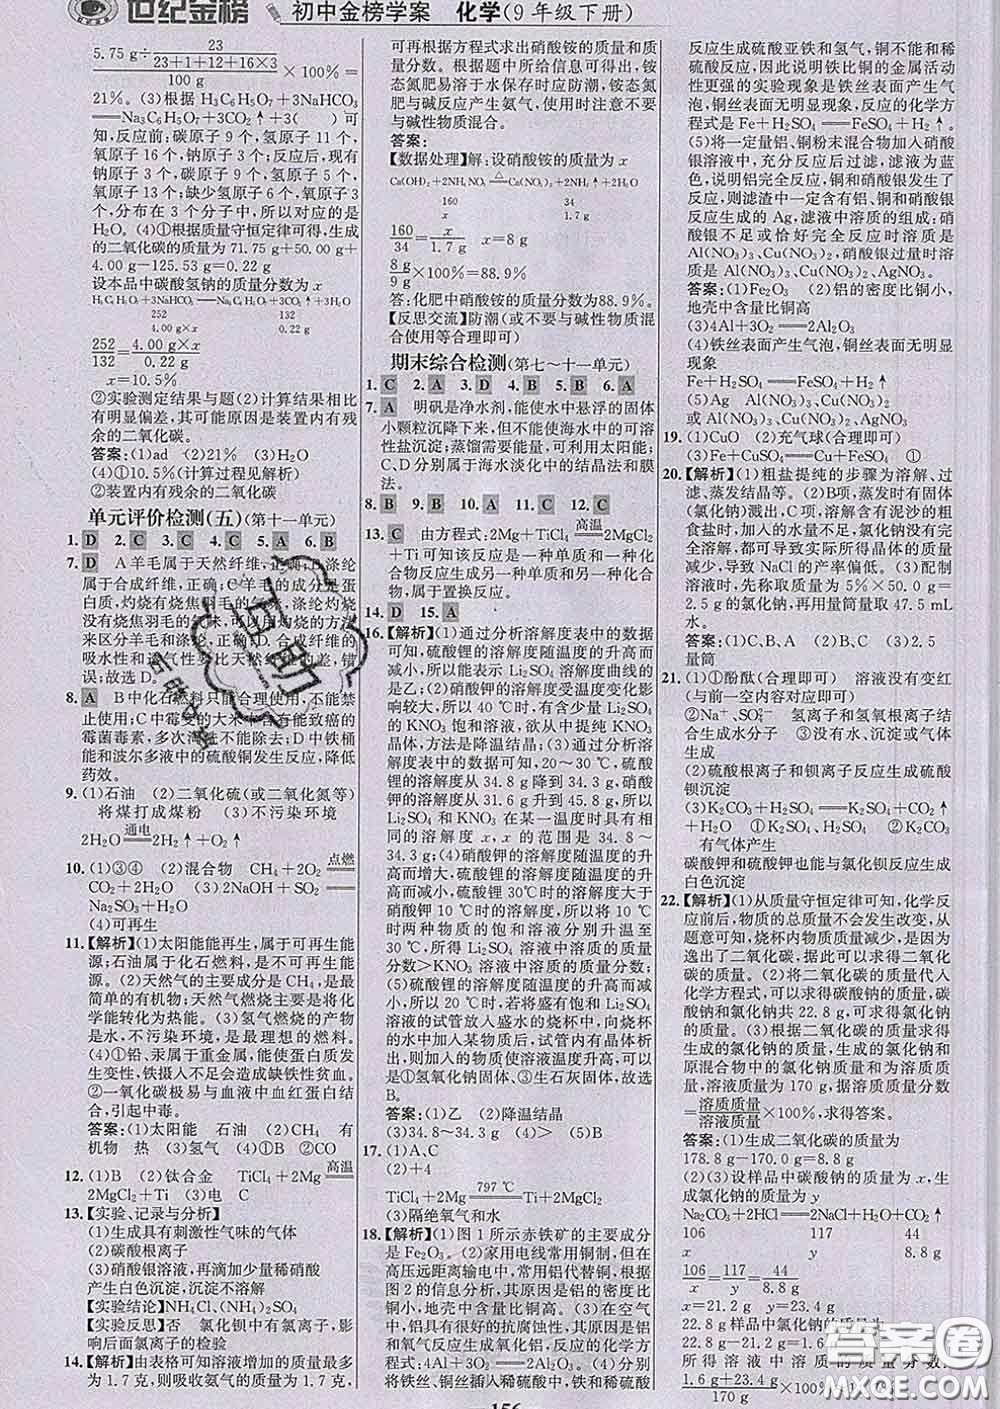 世纪金榜 初中金榜学案 化学(9年级下册)
5.75 g÷ 23/(23+1+12+16×3) / 100 g ×100%=
21%。(3)根据 H₃C₆H₅O₇+3NaHCO₃
══Na₃C₆H₅O₇+3CO₂↑+3( )可
知,反应前:碳原子 9 个,氢原子 11 个,
氧原子 16 个,钠原子 3 个;反应后,现有
钠原子 3 个,碳原子 9 个,氢原子 5 个,
氧原子 13 个;缺少氢原子 6 个,氧原子 3
个,分布在 3 个分子中,所以对应的是
H₂O。(4)①根据质量守恒定律可得,生成
的二氧化碳的质量为 71.75 g+50.00 g+
4.00 g-125.53 g=0.22 g
设本品中碳酸氢钠的质量分数为 x
H₃C₆H₅O₇+3NaHCO₃══Na₃C₆H₅O₇+3CO₂↑+3H₂O
252 132
4.00 g×x 0.22 g
252/132=4.00 g×x/0.22 g
x=10.5%
②实验测定结果与题(2)计算结果相比
有明显偏差,其可能原因是装置内有残
余的二氧化碳。
答案:(1)ad (2)21% (3)H₂O
(4)①10.5%(计算过程见解析)
②装置内有残余的二氧化碳
单元评价检测(五)(第十一单元)
1. D 2. C 3. C 4. C 5. B 6. B
7. D A羊毛属于天然纤维,正确;B涤纶
属于合成纤维,正确;C羊毛的成分是蛋
白质,灼烧有烧焦羽毛的气味,涤纶灼烧
没有烧焦羽毛的气味,可以用灼烧的方法
来区分羊毛和涤纶,正确;D、合成纤维的
吸水性和透气性要比天然纤维的差,错
误;故选D。
8. A B中化石燃料只能合理使用,不能禁
止使用;C中霉变的大米中含有能致癌的
霉菌毒素,多次淘洗不能除去;D中铁桶
能和波尔多液中的硫酸铜发生反应,降低
药效。
9. (1)石油 (2)二氧化硫(或二氧化氮等)
将煤打成煤粉 (3)不污染环境
2H₂O 通电══ 2H₂↑+O₂↑
10. (1)①③④ (2)混合物 CH₄+2O₂ 点燃══
CO₂+2H₂O (3)2NaOH+SO₂══
Na₂SO₃+H₂O
(4)可再生
11.【解析】(1)太阳能能再生,属于可再生能
源;石油属于化石燃料,属于不可再生能
源。(2)天然气的主要成分是 CH₄,是最
简单的有机物;天然气燃烧主要是将化
学能转化为热能。(3)氢气燃烧的产物
是水,不污染环境,是最理想的燃料。
(4)①铅、汞属于重金属,能使蛋白质发生
变性,铁摄入不足会造成缺铁性贫血。
②一氧化碳极易与血液中血红蛋白结
合,引起中毒。
答案:(1)太阳能 石油 (2)CH₄ 有
机物 热 (3)氢气 (4)①B ②CO
12. (1)B (2)钛合金 TiCl₄+2Mg 高温══
2MgCl₂+Ti (3)电 C
13.【实验、记录与分析】
(1)生成具有刺激性气味的气体
(2)碳酸根离子
(3)硝酸银溶液,再滴加少量稀硝酸
产生白色沉淀,沉淀不溶解
【实验结论】NH₄Cl、(NH₄)₂SO₄
【实验反思】否 氯化钡中有氯离子,影
响后面氯离子的检验
14.【解析】由表格可知溶液增加的质量最多
为 1.7 克,则吸收氨气的质量为 1.7 克,
可再根据方程式求出硝酸铵的质量和质
量分数。根据题中所给信息可得出,铵
态氮肥易溶于水保存时应防潮,铵态氮
肥与碱反应产生氨气,使用时注意不要
与碱性物质混合。
答案:
【数据处理】解:设硝酸铵的质量为 x
Ca(OH)₂+2NH₄NO₃ △══Ca(NO₃)₂+2NH₃↑+2H₂O
160 34
x 1.7 g
160/34=x/1.7 g x=8 g
8 g/9 g×100%=88.9%
答:化肥中硝酸铵的质量分数为88.9%。
【反思交流】防潮(或不要与碱性物质混
合使用等合理即可)
期末综合检测(第七～十一单元)
1. C 2. A 3. D 4. B 5. B 6. A
7. A 明矾是净水剂,能使水中悬浮的固体
小颗粒沉降下来,但不能使海水中的可溶
性盐沉淀;蒸馏需要能量,可利用太阳能;
C、D分别属于海水淡化中的结晶法和膜
法。
8. B 9. B 10. A 11. C 12. C
13. C 由方程式:2Mg+TiCl₄ 高温══2MgCl₂
+Ti可知该反应是一种单质和一种化
合物反应生成另一种单质和另一种化合
物,属于置换反应。
14. D 15. A
16.【解析】(1)通过分析溶解度表中的数据
可知,硫酸锂的溶解度随温度的升高而
减小,所以能表示 Li₂SO₄ 溶解度曲线的
是乙;(2)硝酸钾的溶解度受温度变化影
响较大,所以 40 ℃时,将含有少量 Li₂SO₄
的 KNO₃ 饱和溶液,欲从中提纯 KNO₃,
采用的方法是降温结晶;(3)通过分析溶
解度表中的数据可知,20～30 ℃,硫酸
锂的溶解度从 34.8 g 降到 34.3 g,硝酸
钾的溶解度从 31.6 g 升到 45.8 g,所以
Li₂SO₄ 和 KNO₃ 在某一温度时具有相
同的溶解度 x,x 的范围是 34.8～
34.3 g;(4)硝酸钾的溶解度随温度的升
高而增大,硫酸锂的溶解度随温度的升
高而减小,硫酸锂 30℃时的溶解度大于
硝酸钾 10 ℃时的溶解度,所以将两种物
质 10 ℃的饱和溶液分别升温至
30 ℃,所得 Li₂SO₄ 溶液中溶质的质量
分数>KNO₃ 溶液中溶质的质量分数;
(5)硫酸锂的溶解度随温度的升高而减
小,所以 20 ℃时,若将盛有饱和 Li₂SO₄
的试管放入盛水的烧杯中,向烧杯的
水中加入某物质后,试管内有晶体析
出,则加入的物质使溶液温度升高,可以
是①氢氧化钠固体、③生石灰固体。故选
B。
答案:(1)乙 (2)降温结晶
(3)34.8~34.3 g (4)> (5)B
17. (1)A、C
(2)+4
TiCl₄+2Mg 797 ℃══Ti+2MgCl₂
(3)隔绝氧气和水
18.【解析】(1)图 1 所示赤铁矿的主要成分
是 Fe₂O₃。(2)家用电线常用铜制,但在
高压远距离输电中,常用铝代替铜,根据
图 2 的信息分析,主要原因是铝的密度
比铜小,地壳中含量比铜高。(3)在空气中,
铝具有很好的抗腐蚀性,原因是铝和氧气
反应生成致密的氧化铝薄膜,反应的化学
方程式是:4Al+3O₂══2Al₂O₃。(4)分别
将铁丝、铜丝插入稀硫酸中,铁和稀硫酸
反应生成硫酸亚铁和氢气,铜不能和稀
硫酸反应,因此说明铁比铜的金属活动
性更强的实验现象是铁丝表面产生气
泡,铜丝表面无明显现象,反应的化学方
程式是 Fe+H₂SO₄══FeSO₄+H₂↑。
(5)将一定量铝、铜粉末混合物加入硝酸
银溶液中,充分反应后过滤,滤液为蓝
色,说明铝完全反应,铜和硝酸银发生了
反应,则滤渣中一定不含铝、铜和硝酸银
反应生成的 Ag,滤液中溶质的组成:硝
酸银不足或恰好完全反应时溶质为
Al(NO₃)₃、Cu(NO₃)₂,硝酸银过量时溶质
为 Al(NO₃)₃、Cu(NO₃)₂、AgNO₃。
答案:(1)Fe₂O₃ (2)铝的密度比铜小,
地壳中含量比铜高
(3)4Al+3O₂══2Al₂O₃
(4)铁丝表面产生气泡,铜丝表面无明显
现象
Fe+H₂SO₄══FeSO₄+H₂↑
(5)Ag Al(NO₃)₃、Cu(NO₃)₂
或 Al(NO₃)₃、Cu(NO₃)₂、AgNO₃
19. (1)CuO (2)充气球(合理即可)
(3)Fe+CuSO₄══Cu+FeSO₄ ①
20.【解析】(1)粗盐提纯的步骤为溶解、过
滤、蒸发结晶等。(2)B项,蒸发时有固体
(氯化钠)溅出,C 项,溶解含有泥沙的粗
食盐时,加入的水量不足,氯化钠没有完
全溶解,都可导致实际所得晶体的质量
减少,导致 NaCl 的产率偏低。(3)配制
溶液时,先称取质量为 5%×50.0 g=
2.5 g 的氯化钠,再用量筒量取 47.5 mL
水。
答案:(1)C、B、A (2)B、C (3)2.5
量筒
21. (1)①酚酞(合理即可) 溶液没有变红
(与前一空内容对应即可)
②Na⁺、SO₄²⁻ 氢离子和氢氧根离子结
合生成水分子 ③没有水、沉淀或气体
生成
(2)硫酸根离子和钡离子反应生成硫酸
钡沉淀
(3)K₂CO₃+H₂SO₄══K₂SO₄+CO₂↑
+H₂O ①④⑤
有气体产生
碳酸钾和硫酸钾也能与氯化钡反应生成
白色沉淀
22.【解析】(1)从质量守恒定律可知,化学反
应前后,物质的总质量不会发生改变,从
题意可知,烧杯内物质质量减少,是因为
逸出了二氧化碳,因此可以求得二氧化
碳的质量。(2)将二氧化碳的质量代入
化学方程式,可以求得碳酸钠的质量,碳酸
钠和氯化钠共 22.8 g,可求得氯化钠的
质量。(3)根据二氧化碳的质量求得
生成的氯化钠的质量,生成的氯化钠和
原混合物中的氯化钠质量和为溶质质量,
溶液质量为 170 g,据溶质质量分数
=溶质质量/溶液质量×100%,求得答案。
答案:(1)生成二氧化碳的质量为
178.8 g-170.0 g=8.8 g
(2)(3)设样品中碳酸钠的质量为 x,
生成氯化钠的质量为 y
Na₂CO₃+2HCl══2NaCl+H₂O+CO₂↑
106 117 44
x y 8.8 g
106/x=117/y=44/8.8 g
x=21.2 g y=23.4 g
22.8 g样品中氯化钠的质量为
22.8 g-21.2 g=1.6 g
所得溶液中溶质的质量分数
(1.6 g+23.4 g)/170 g×100%
156
答案圈